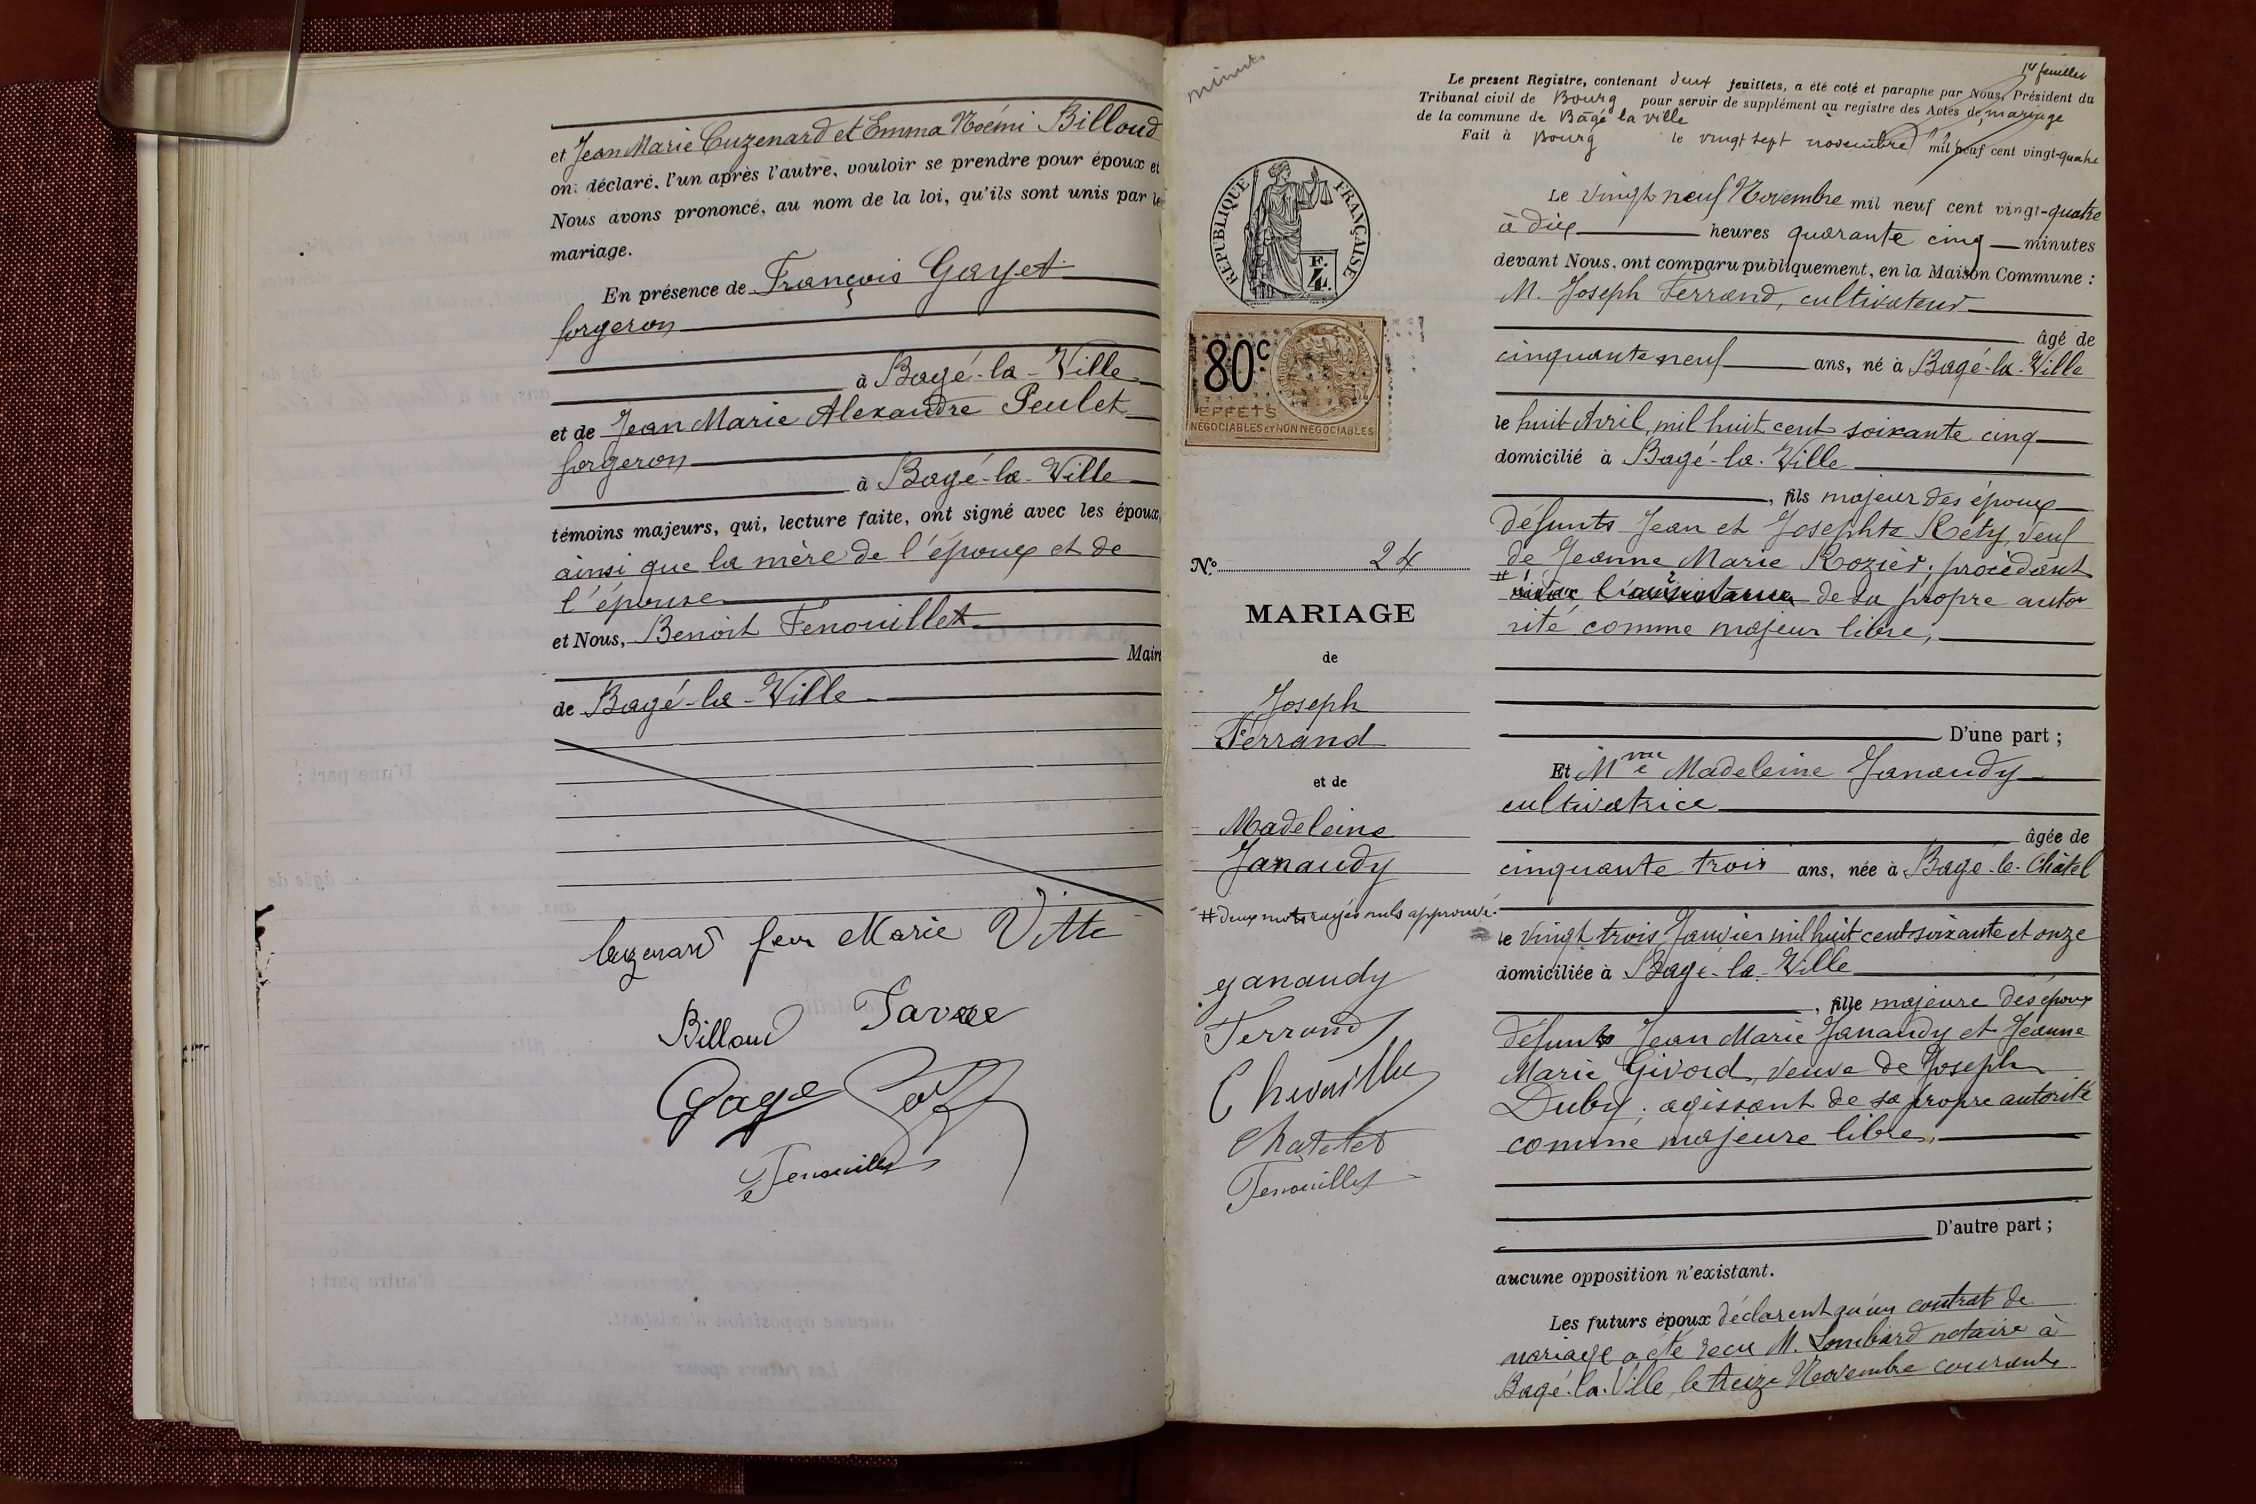 et Jean Marie Cuzenard et Emma Noémi Billoud
ont déclaré, l'un après l'autre, vouloir se prendre pour époux et
Nous avons prononcé, au nom de la loi, qu'ils sont unis par le
mariage.
En présence de François Gayet
forgeron
à Bagé-la-Ville
et de Jean Marie Alexandre Peulet
forgeron
à Bagé-la-Ville
témoins majeurs, qui, lecture faite, ont signé avec les époux,
ainsi que la mère de l'époux et de
l'épouse
et Nous, Benoit Fenouillet
Maire
de Bagé-la-Ville
Cuzenard feu Marie Vitte
Billoud
Fenouillet
minute
14 feuillet
Le present Registre, contenant deux feuillets, a été coté et paraphe par Nous, Président du
Tribunal civil de Bourg pour servir de supplément au registre des Actes de mariage
de la commune de Bagé la ville
Fait à Bourg le vingt sept novembre mil neuf cent vingt-quatre
RÉPUBLIQUE FRANÇAISE
F.
4.
80c
EFFETS
NÉGOCIABLES ET NON NÉGOCIABLES
No 24
MARIAGE
de
Joseph
Ferrand
et de
Madeleine
Janaudy
# deux mots rayés nuls approuvé.
Janaudy
Ferrand
Chevaillu
Chatelet
Fenouillet
Le vingt neuf Novembre mil neuf cent vingt-quatre
à dix heures quarante cinq minutes
devant Nous, ont comparu publiquement, en la Maison Commune :
M. Joseph Ferrand, cultivateur
âgé de
cinquante neuf ans, né à Bagé-la-Ville
le huit Avril, mil huit cent soixante cinq
domicilié à Bagé-la-Ville
, fils majeur des époux
défunts Jean et Josephte Réty, veuf
de Jeanne Marie Rozier, procédant
# de sa propre auto
rité comme majeur libre,
D'une part ;
Et Mme Madeleine Janaudy
cultivatrice
âgée de
cinquante trois ans, née à Bagé-le-Châtel
le vingt trois Janvier mil huit cent soixante et onze
domiciliée à Bagé-la-Ville
, fille majeure des époux
défunts Jean Marie Janaudy et Jeanne
Marie Givord, veuve de Joseph
Duby, agissant de sa propre autorité
comme majeure libre,
D'autre part ;
aucune opposition n'existant.
Les futurs époux déclarent qu'un contrat de
mariage a été recu M. Lombard notaire à
Bagé-la-Ville, le treize Novembre courant